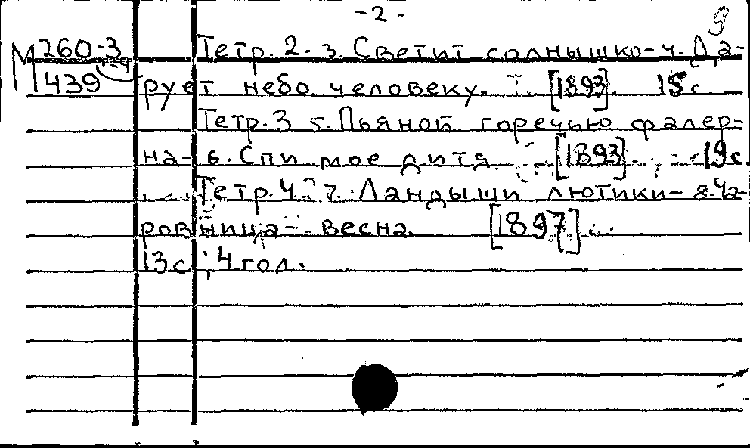 -2-
9
М 260-3 Тетр. 2. 3. Светит солнышко-4. Да-
439 рует небо человеку. [1893]. 15с
Тетр. 3 5. Пьяной горечью фалер-
на- 6. Спи мое дитя [1893] 19с.
Тетр. 4. 7. Ландыши лютики- 8. Ча-
ровница- весна. [1897].
13с; 4 гол.